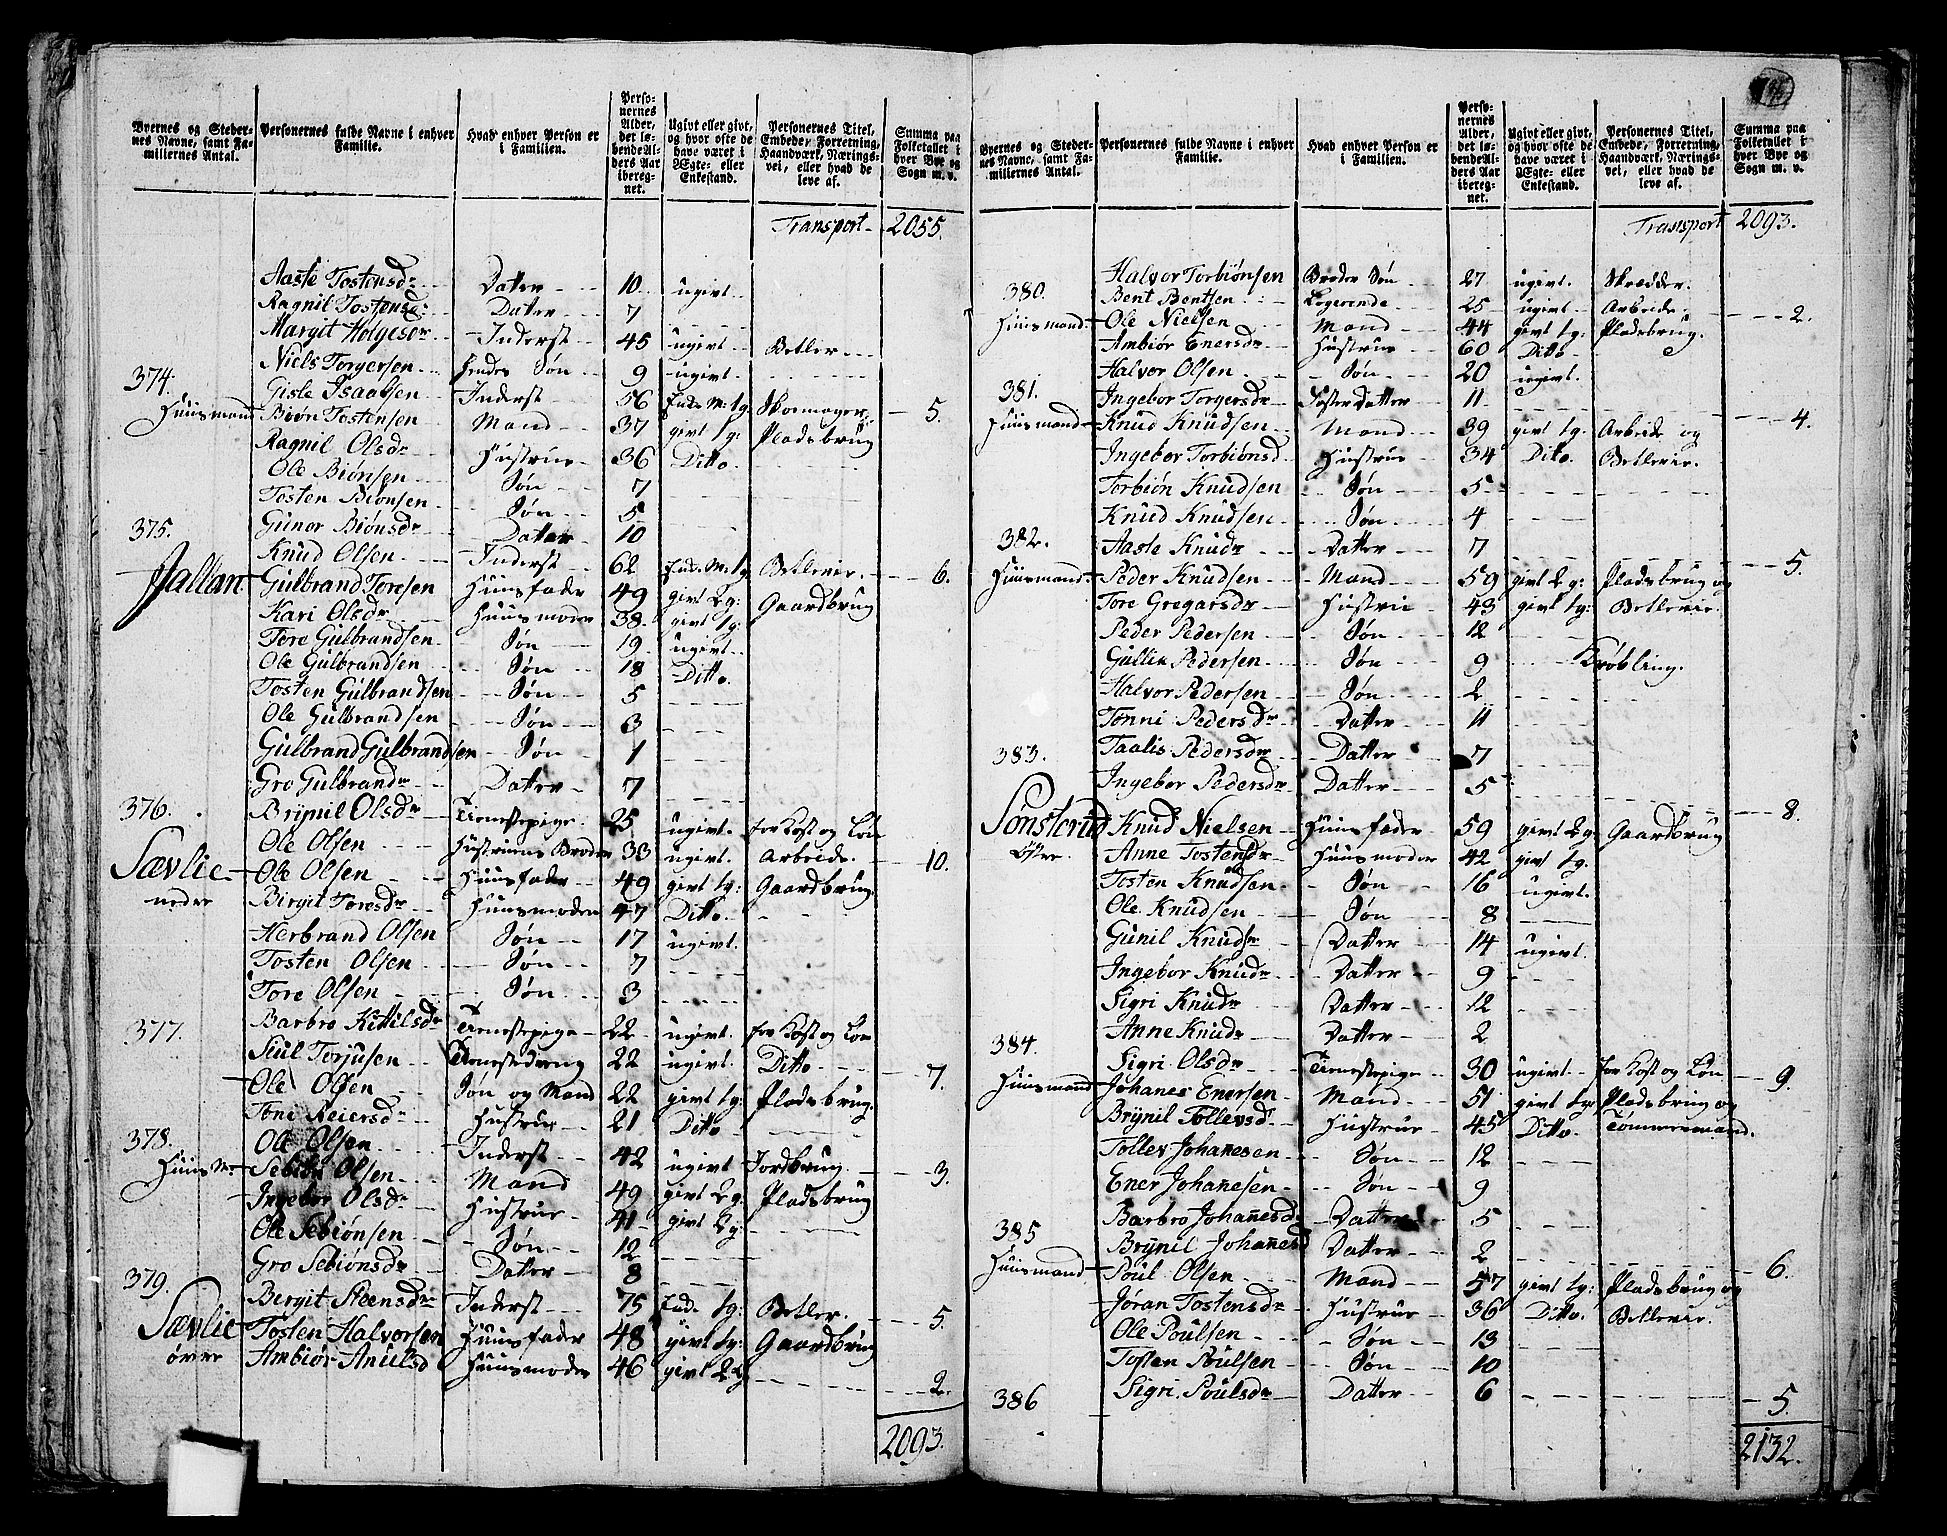 Byernes og Stedernes Navne, samt Familiernes Antal. | Personernes fulde Navne i enhver Familie. | Hvad enhver Person er i Familien. | Personernes Alder, det løbende Alders Aar iberegnet. | Ugivt eller givt, og hvor ofte de have været i Ægte- eller Enkestand. | Personernes Titel, Embede, Forretning, Haandværk, Næringsvei, eller hvad de leve af. | Summa paa Folketallet i hver Bye og Sogn m. v.
Transport 2055.
Aaste Tostensdr Datter 10 ugivt
Ragnil Tostensdr Datter 7
Margit Holgesdr Inderst 45 ugivt Betler
Niels Torgersen Hendes Søn 9 ugivt
374. Gisle Isaaksen Inderst 56 Enke M: 1g Skomager 5.
Huusmand Biørn Tostensen Mand 37 givt 1g: Pladsbrug
Ragnil Olsdr Hustrue 36 Ditto
Ole Biønsen Søn 7
Tosten Biønsen Søn 5
Gunor Biønsdr Datter 10
375. Knud Olsen Inderst 62 Enke M: 1g Betlerie 6.
Jallan Gulbrand Toresen Huusfader 49 givt 2g: Gaardbrug
Kari Olsdr Huusmoder 38 givt 1g:
Tore Gulbrandsen Søn 19 ugivt
Ole Gulbrandsen Søn 18 Ditto
Tosten Gulbrandsen Søn 5
Ole Gulbrandsen Søn 3
Gulbrand Gulbrandsen Søn 1
Gro Gulbrandr Datter 7
376. Brynil Olsdr Tienestepige 25 ugivt for Kost og Løn
Ole Olsen Hustruens Broder 33 ugivt Arbeide 10.
Sævlie nedre Ole Olsen Huusfader 49 givt 1g: Gaardbrug
Birgit Toresdr Huusmoder 47 Ditto
Herbrand Olsen Søn 17 ugivt
Tosten Olsen Søn 7
Tore Olsen Søn 3
377. Barbro Kittilsdr Tienestepige 22 ugivt for Kost og Løn
Siul Torjusen Tienestedreng 22 ugivt Ditto 7.
Ole Olsen Søn og Mand 22 givt 1g: Pladsbrug
Toni Reiersdr Hustrue 21 Ditto
378. Ole Olsen Inderst 42 ugivt Jordbrug 3.
Huus M: Sebiøn Olsen Mand 49 givt 2g: Pladsbrug
Ingebor Olsdr Hustrue 41 givt 2g:
Ole Sebiønsen Søn 12
Gro Sebiønsdr Datter 8
379. Bergit Steensdr Inderst 75 Enke 1g: Betler 5.
Sævlie øvre Tosten Halvorsen Huusfader 48 givt 1g: Gaardbrug
Ambiør Anulsd Huusmoder 46 givt 2g 2.
2093.
Byernes og Stedernes Navne, samt Familiernes Antal. | Personernes fulde Navne i enhver Familie. | Hvad enhver Person er i Familien. | Personernes Alder, det løbende Alders Aar iberegnet. | Ugivt eller givt, og hvor ofte de have været i Ægte- eller Enkestand. | Personernes Titel, Embede, Forretning, Haandværk, Næringsvei, eller hvad de leve af. | Summa paa Folketallet i hver Bye og Sogn m. v.
Transport 2093.
Halvor Torbiønsen Broder Søn 27 ugivt Skredder
380. Bent Bentsen Logerende 25 ugivt Arbeide 2.
Huusmand Ole Nielsen Mand 44 givt 1g: Pladsbrug
Ambiør Enersdr Hustrue 60 Ditto
Halvor Olsen Søn 20 ugivt
381. Ingebor Torgersdr Foster Datter 11 4.
Huusmand Knud Knudsen Mand 39 givt 1g Arbeide og
Ingebor Torbiønsd Hustrue 34 Dito Betlerie
Torbiøn Knudsen Søn 5
Knud Knudsen Søn 4
382. Aaste Knudr Datter 7
Huusmand Peder Knudsen Mand 59 givt 2g: Pladsbrug og 5.
Tore Gregarsdr Hustrue 43 givt 1g: Betlerie
Peder Pedersen Søn 12
Gullik Pedersen Søn 9 Krøbling
Halvor Pedersen Søn 2
Tonni Pedersdr Datter 11
383. Taalis Pedersdr Datter 7
Ingebor Pedersdr Datter 5 8.
Sønsterud øvre Knud Nielsen Huusfader 59 givt 2g Gaardbrug
Anne Tostensdr Huusmoder 42 givt 1g
Tosten Knudsen Søn 16 ugivt
Ole Knudsen Søn 8
Gunil Knudsr Datter 14 ugivt
Ingebor Knudr Datter 9
Sigri Knudr Datter 12
Anne Knudr Datter 2
384. Sigri Olsdr Tienestepige 30 ugivt for Kost og Løn 9.
Huusmand Johanes Enersen Mand 51 givt 1g Pladsbrug og
Brynil Tollevsdr Hustrue 45 Ditto Tømmermand
Tollev Johanesen Søn 12
Ener Johanesen Søn 9
385 Barbro Johanesdr Datter 5
Brynil Johanesd Datter 2 6.
Huusmand Poul Olsen Mand 57 givt 1g: Pladsbrug og
Jøran Tostensdr Hustrue 36 Ditto Betlerie
Ole Poulsen Søn 13
Tosten Poulsen Søn 10
386 Sigri Poulsdr Datter 6 5.
2132.